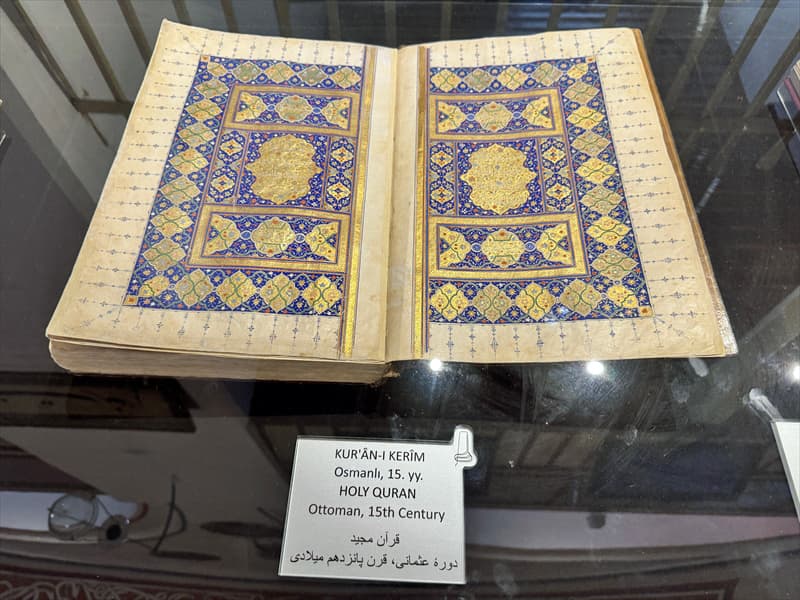 KUR'ÂN-I KERÎM
Osmanlı, 15. yy.
HOLY QURAN
Ottoman, 15th Century
قرآن مجید
دورهٔ عثمانی، قرن پانزدهم میلادی